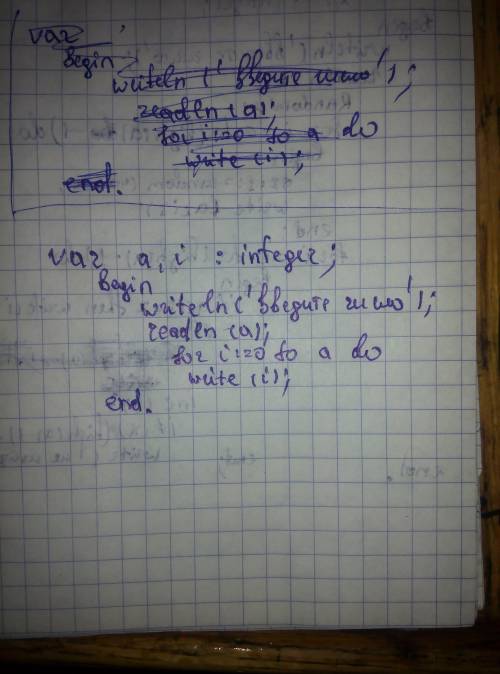 var
begin
writeln ('введите число');
readln (a);
for i:=0 to a do
write (i);
end.
var a, i : integer;
begin
writeln ('введите число');
readln (a);
for i:=0 to a do
write (i);
end.